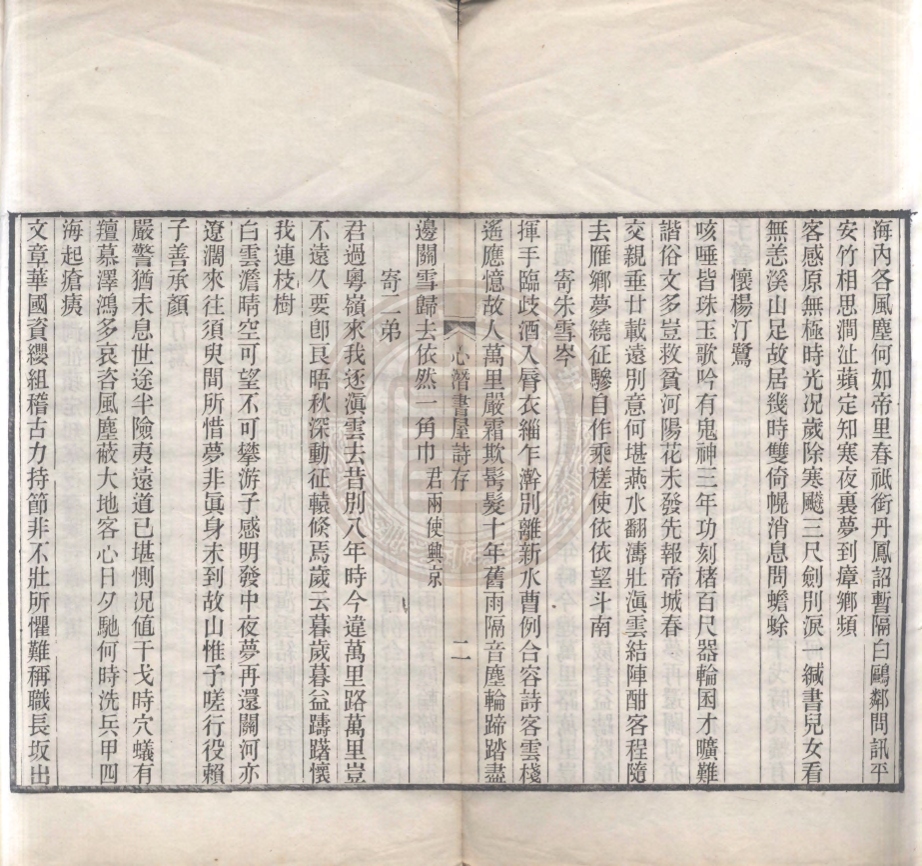 海內各風塵何如帝里春祇銜丹鳳詔暫隔白鷗鄰問訊平
安竹相思澗沚蘋定知寒夜裏夢到瘴鄉頻
客感原無極時光况歲除寒飈三尺劍別淚一緘書兒女看
無恙溪山足故居幾時雙倚幌消息問蟾蜍
懷楊汀鷺
咳唾皆珠玉歌吟有鬼神三年功刻楮百尺器輪囷才曠難
諧俗文多豈救貧河陽花未發先報帝城春
交親垂廿載遠別意何堪燕水翻濤壯滇雲結陣酣客程隨
去雁鄉夢繞征驂自作乘槎使依依望斗南
寄朱雪岑
揮手臨歧酒入脣衣緇乍澣別離新水曹例合容詩客雲棧
遙應憶故人萬里嚴霜欺鬢髮十年舊雨隔音塵輪蹄踏盡
心潛書屋詩存
二
邊關雪歸去依然一角巾君兩使興京
寄二弟
君過粵嶺來我逐滇雲去昔別八年時今違萬里路萬里豈
不遠久要卽良晤秋深動征轅倐焉歲云暮歲暮益躊躇懷
我連枝樹
白雲澹晴空可望不可攀游子感明發中夜夢再還關河亦
遼濶來往須臾間所惜夢非眞身未到故山惟子嗟行役賴
子善承顏
嚴警猶未息世途半險夷遠道已堪惻况值干戈時穴蟻有
羶慕澤鴻多哀咨風塵蔽大地客心日夕馳何時洗兵甲四
海起瘡痍
文章華國資纓組稽古力持節非不壯所懼難稱職長坂出